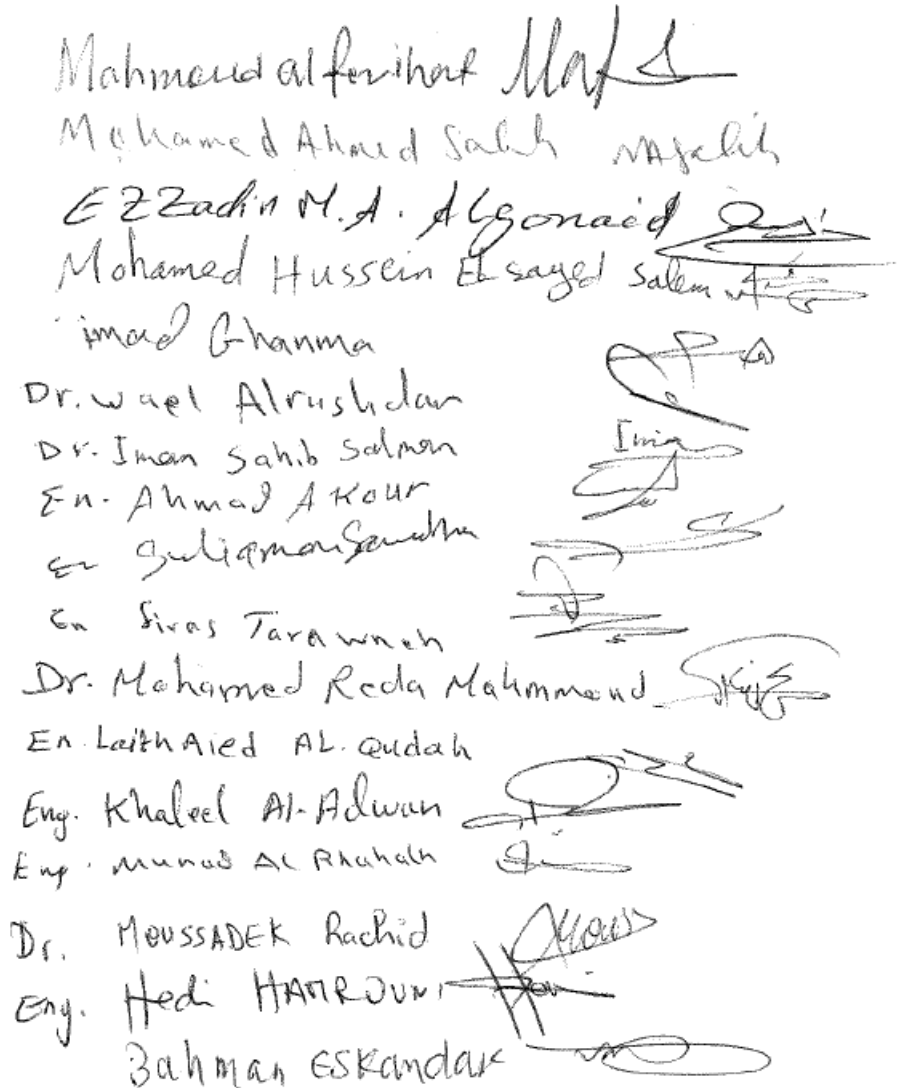 Mahmoud alferihat
Mohamed Ahmed Salih MASalih
EZZadin M.A. ALgonaid
Mohamed Hussein ELsayed Salem
imad Ghanma
Dr. Wael Alrushdan
Dr. Iman Sahib Salman Iman
En. Ahmad AKour
En Suliaman
En Firas Tarawneh
Dr. Mohamed Reda Mahmmoud
En. Laith Aied AL.Qudah
Eng. Khaleel Al-Adwan
Eng. Munad AL
Dr. MOUSSADEK Rachid
Eng. Hedi HAMROUNI
Bahman ESKandar